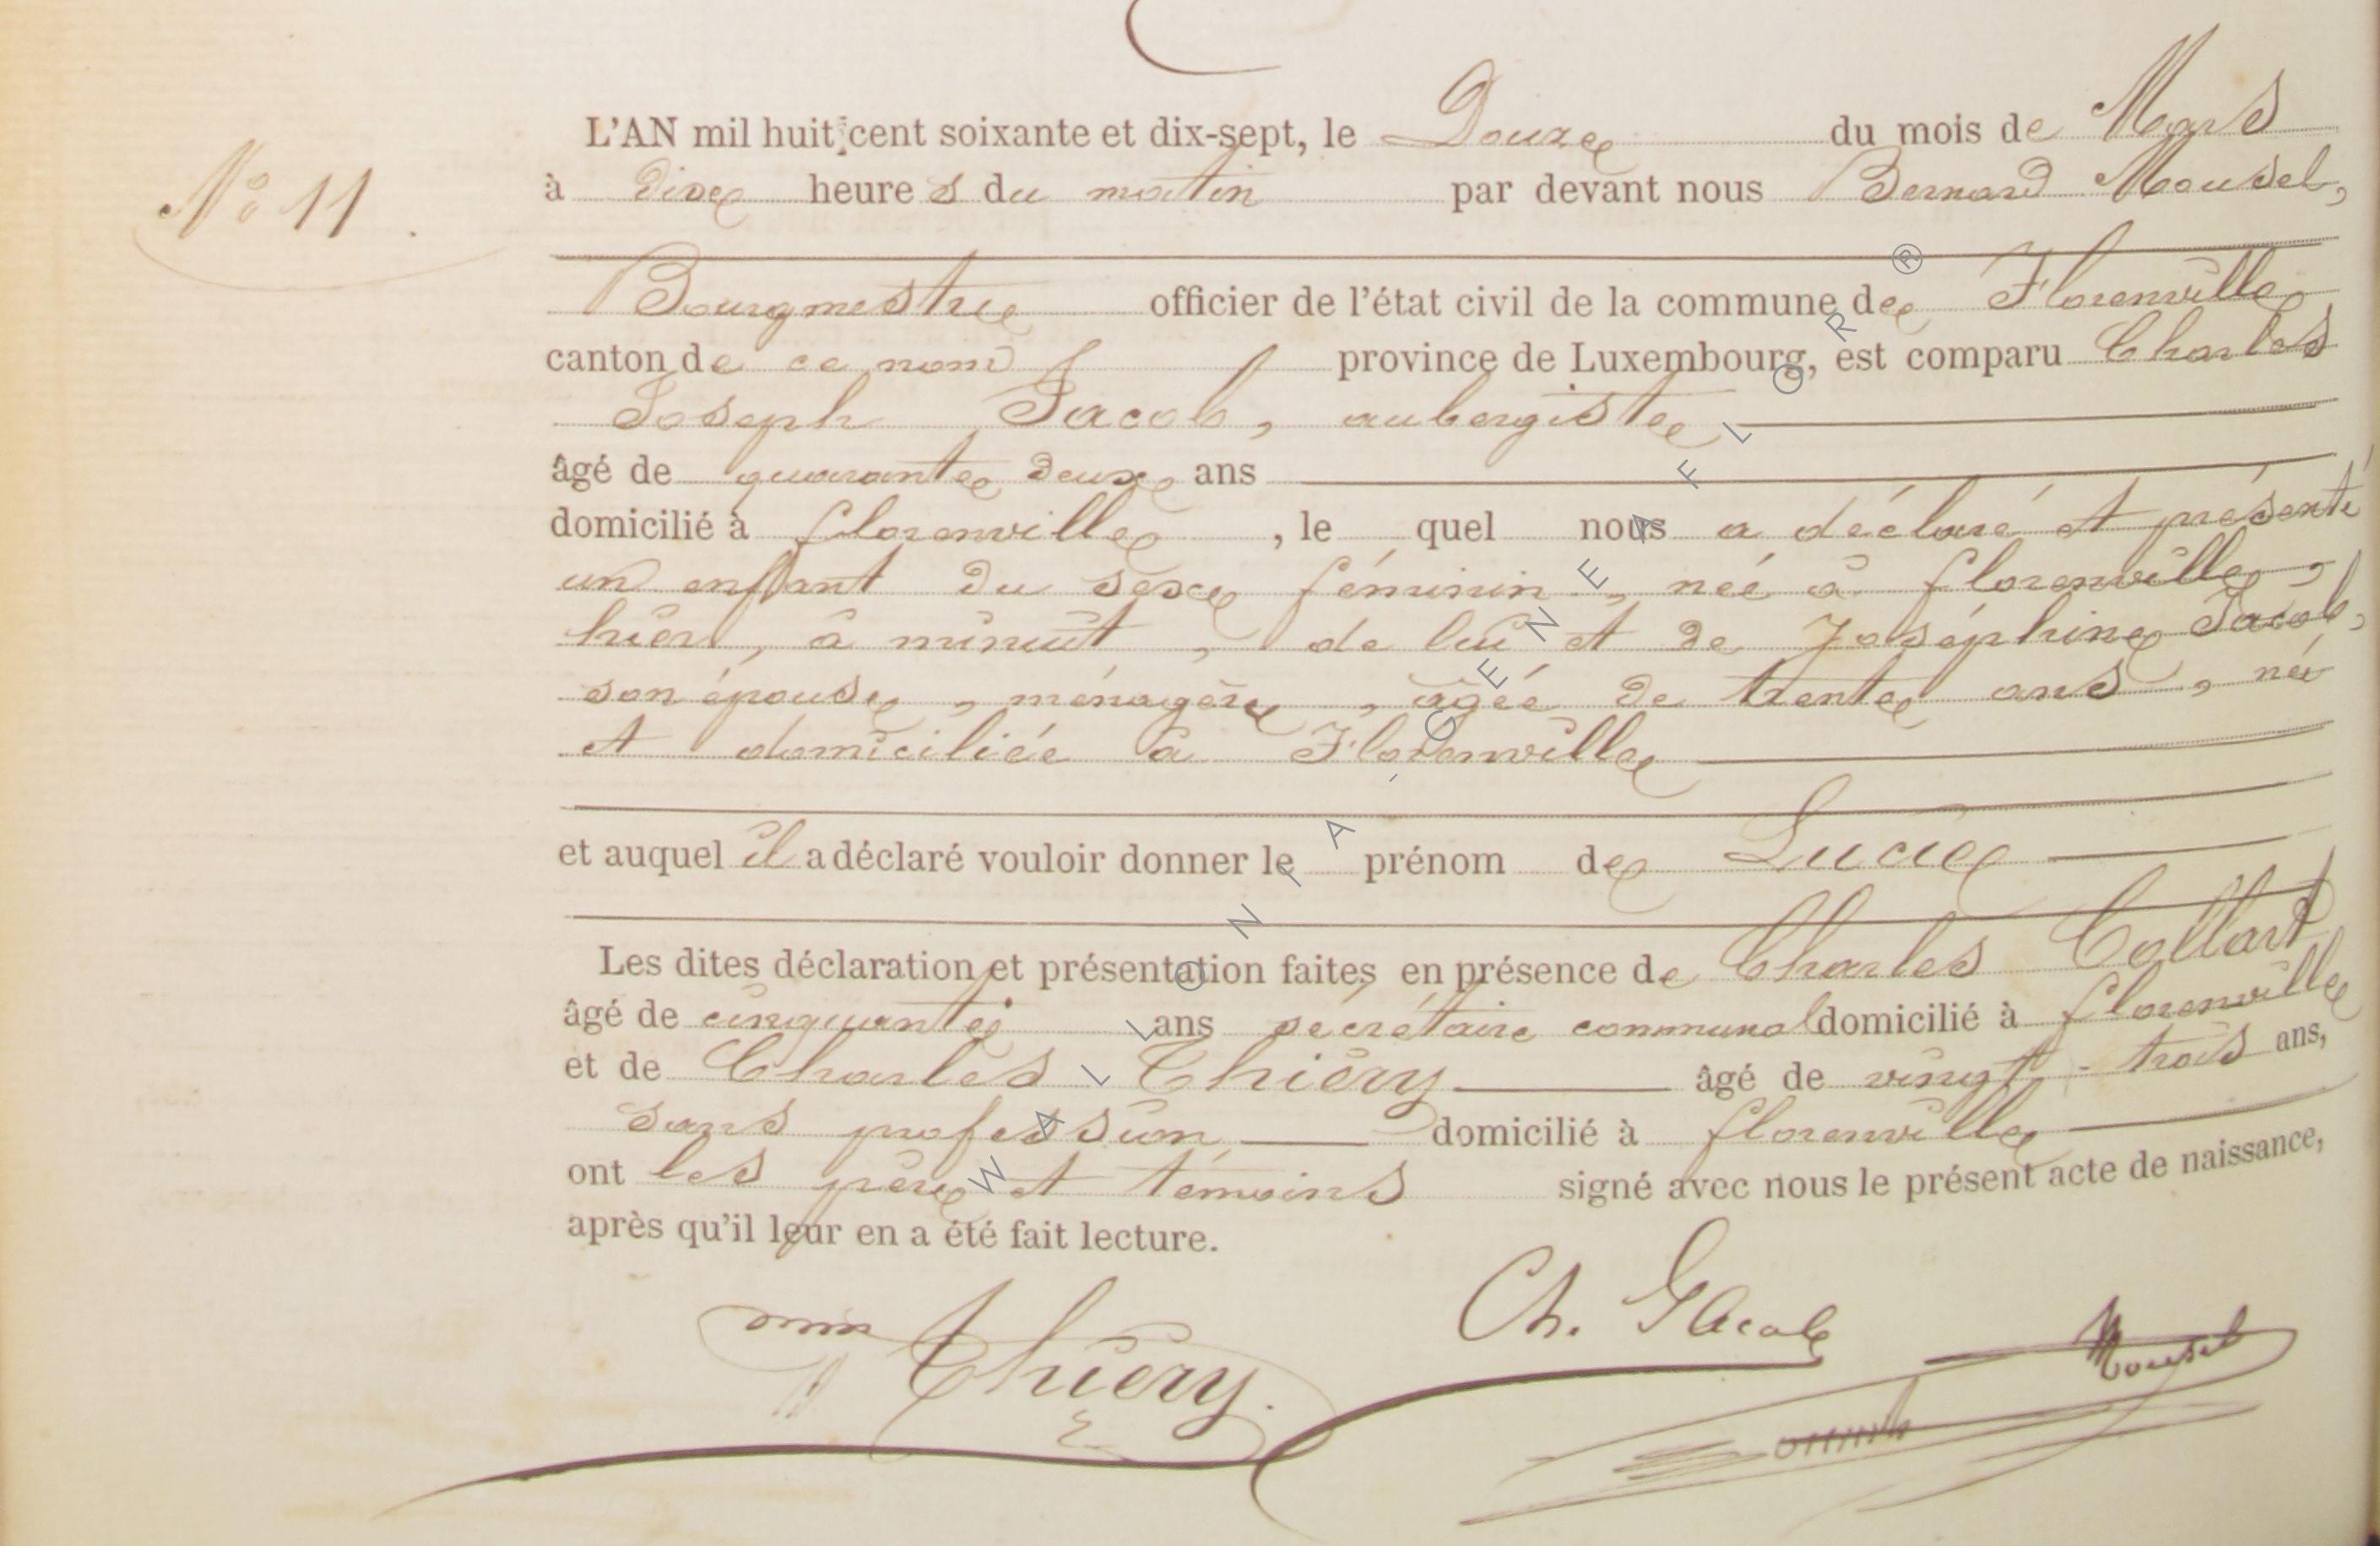 N° 11.
L'AN mil huit cent soixante et dix-sept, le Douze du mois de Mars
à dixe heures du matin par devant nous Bernard Mousel,
Bourgmestre officier de l'état civil de la commune de Florenville
canton de ce nom province de Luxembourg, est comparu Charles
Joseph Jacob, aubergiste
âgé de quarante deux ans
domicilié à florenville, le quel nous a déclaré et présenté
un enfant du sexe féminin, née à florenville,
hier, à minuit, de lui et de Joséphine Jacob,
son épouse, ménagère, agée de trente ans, née
et domiciliée à Florenville
et auquel il a déclaré vouloir donner le prénom de Lucie
Les dites déclaration et présentation faites en présence de Charles Collart
âgé de cinquante ans secrétaire communal domicilié à florenville
et de Charles Thiéry âgé de vingt-trois ans,
sans profession domicilié à florenville
ont les père et témoins signé avec nous le présent acte de naissance,
après qu'il leur en a été fait lecture.
Thiéry. Ch. Jacob Mousel
WALLONIA - GENEAFLOR ®